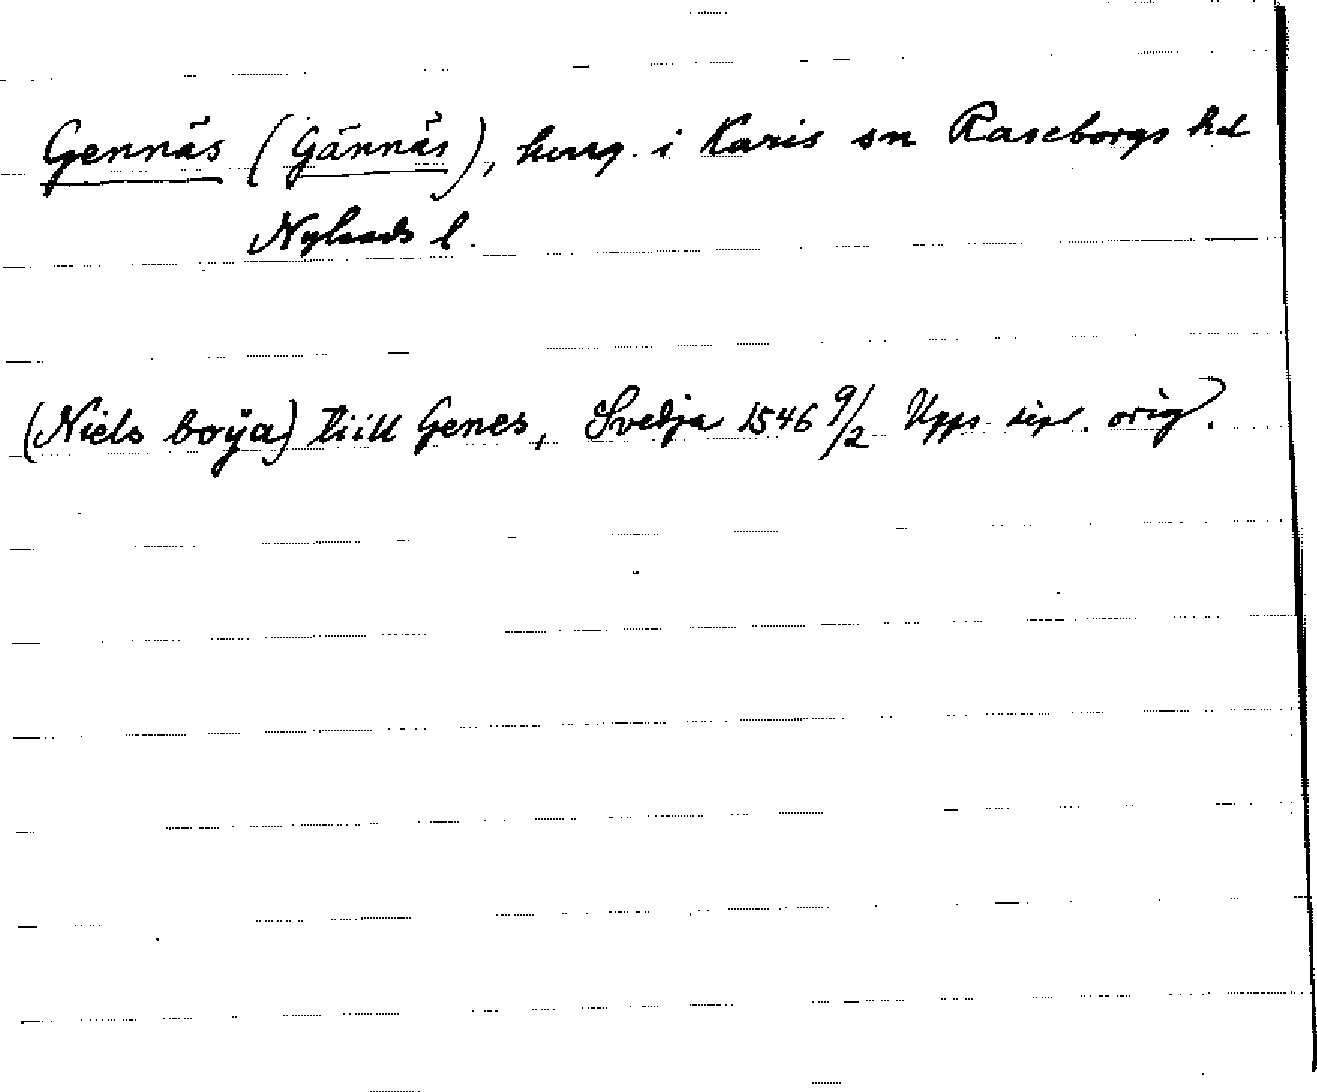 Gennäs (Gännäs), herrg. i Karis sn Raseborgs hd
Nylands l.
(Niels boÿa) tiill Genes, Svedja 1546 9/2 Upps dipl. orig.